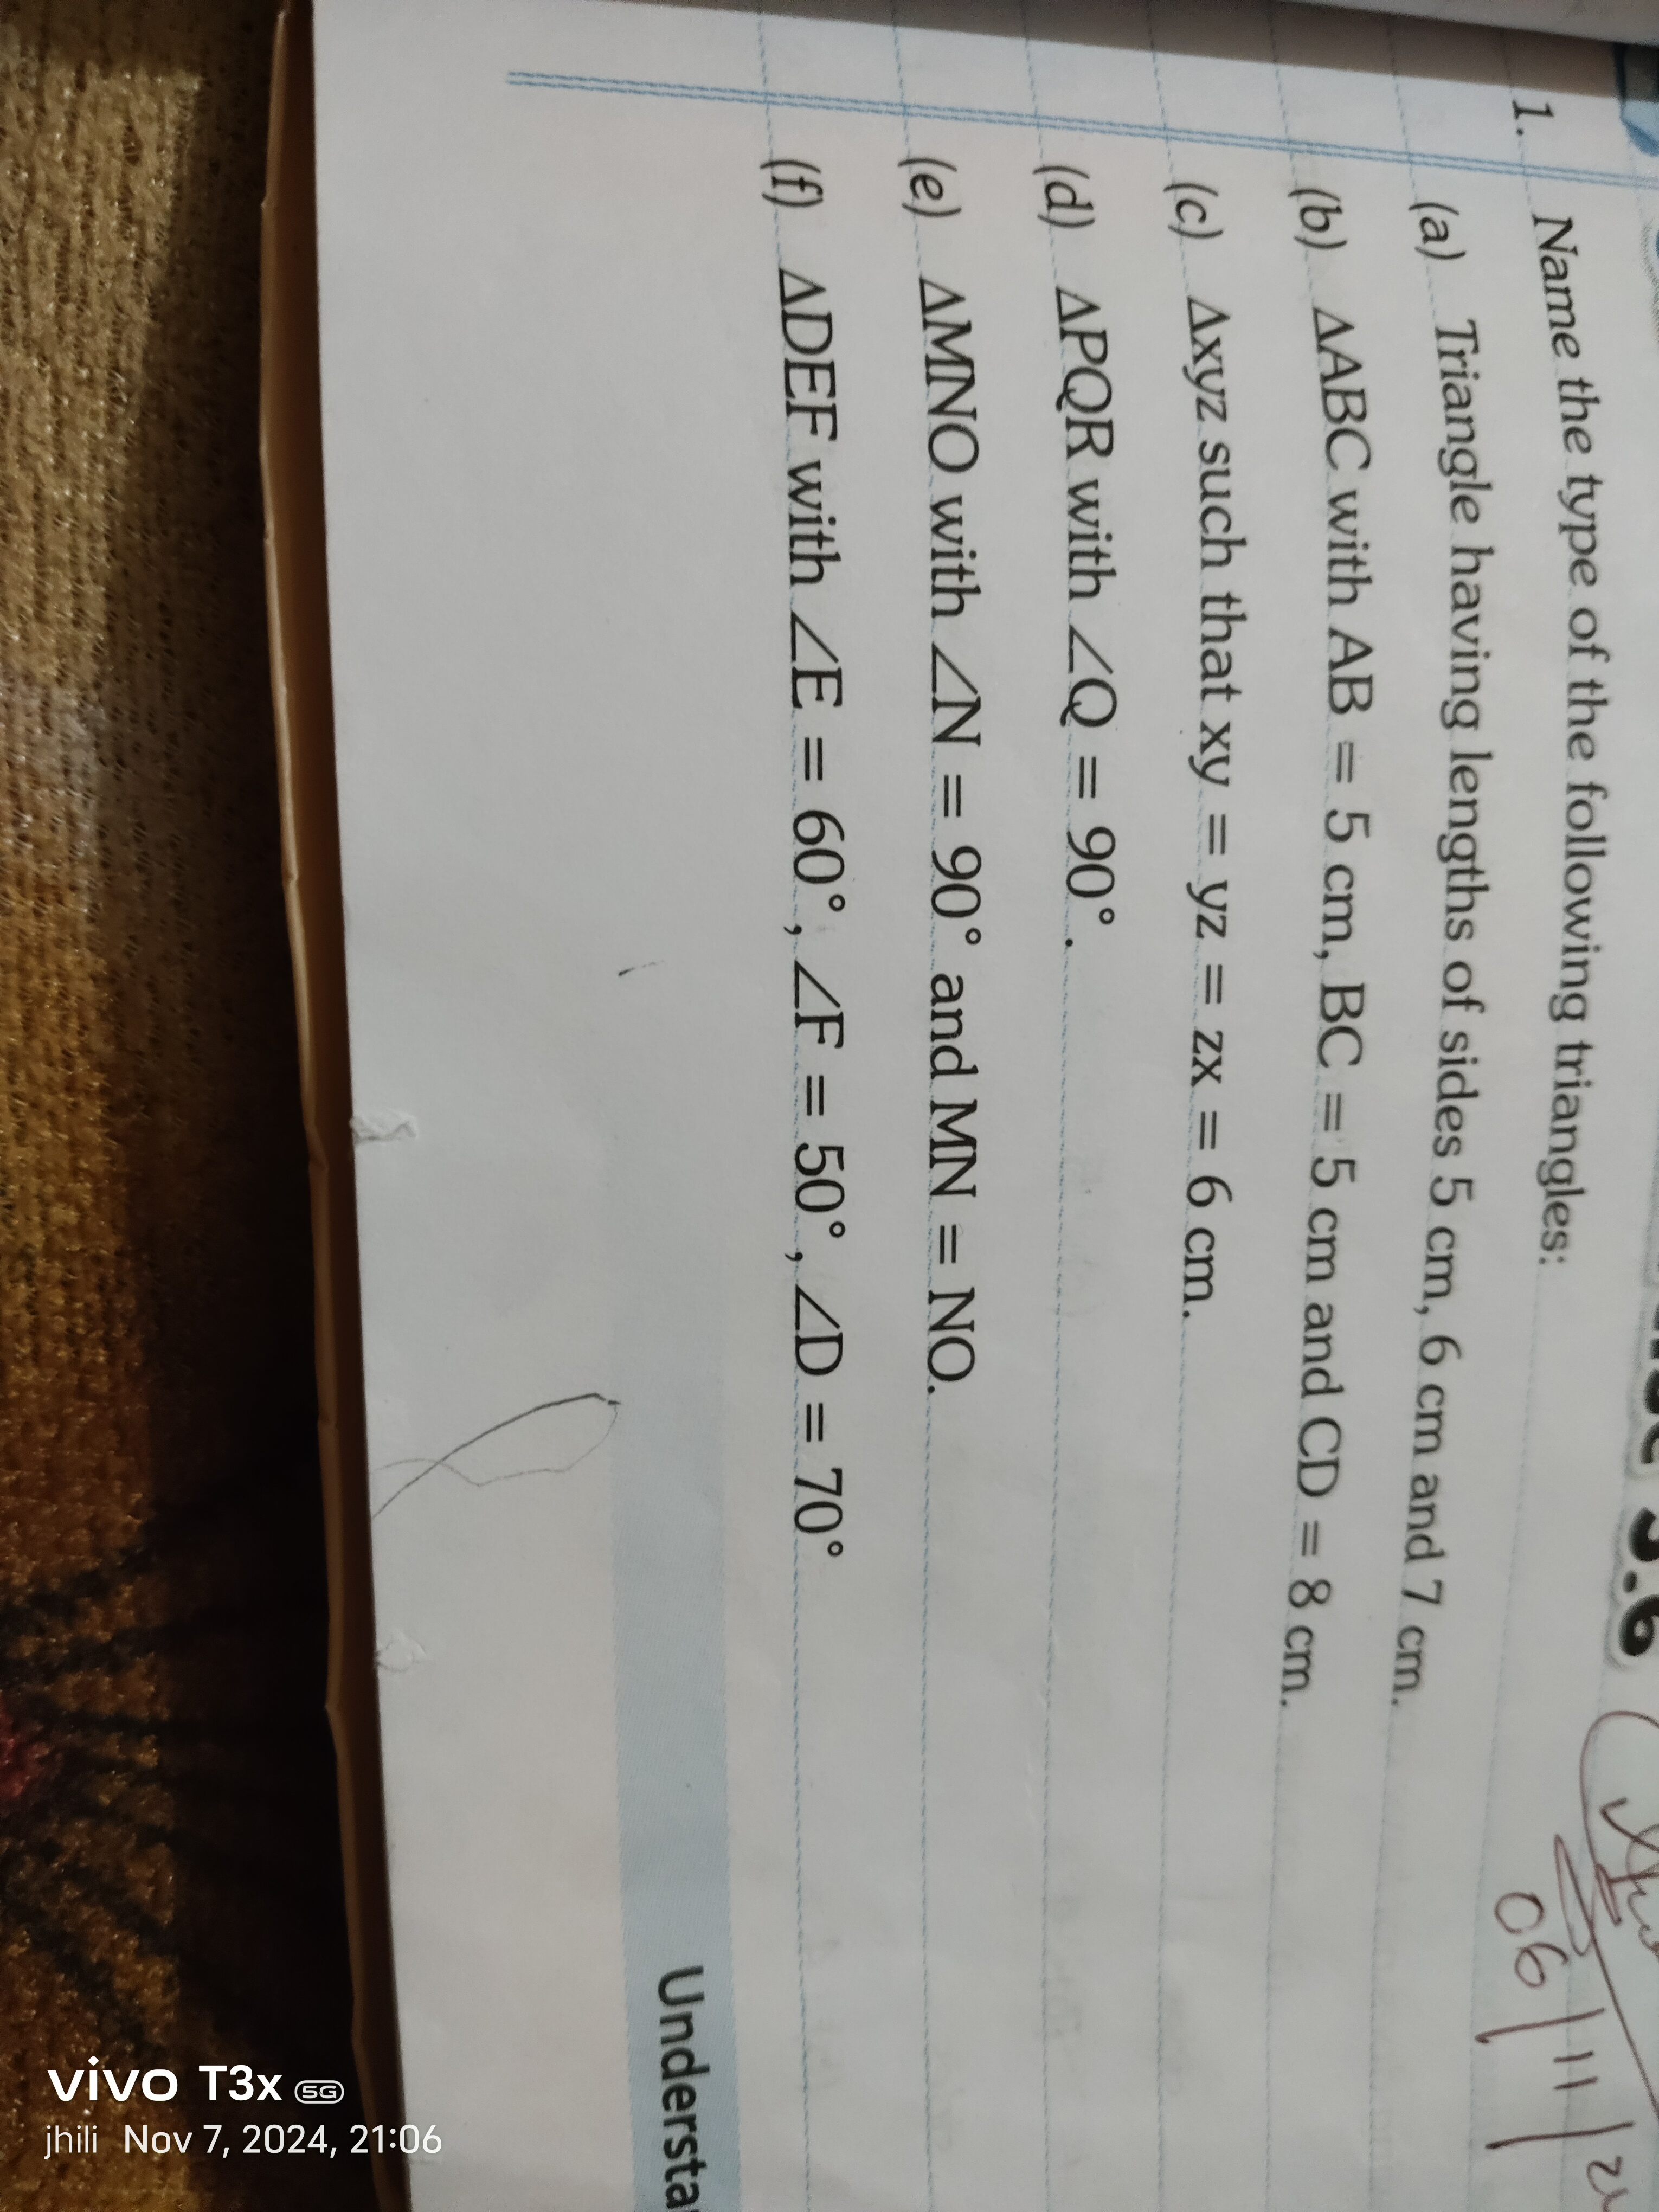 3.6
06/11/2
1. Name the type of the following triangles:
(a) Triangle having lengths of sides 5 cm, 6 cm and 7 cm.
(b) ΔABC with AB = 5 cm, BC = 5 cm and CD = 8 cm.
(c) Δxyz such that xy = yz = zx = 6 cm.
(d) ΔPQR with ∠Q = 90°.
(e) ΔMNO with ∠N = 90° and MN = NO.
(f) ΔDEF with ∠E = 60°, ∠F = 50°, ∠D = 70°
Understa
vivo T3x 5G
jhili Nov 7, 2024, 21:06